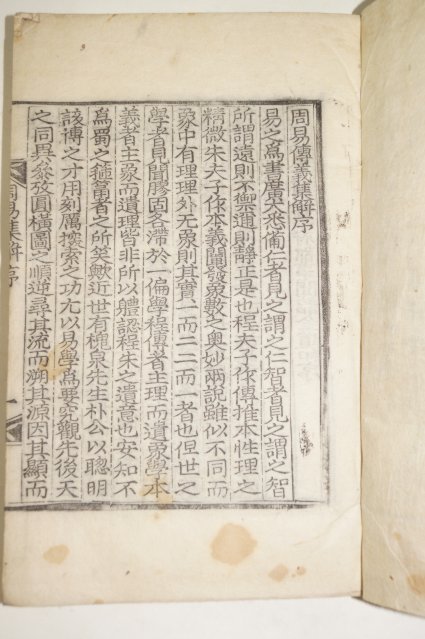 周易傳義集解序
易之爲書廣大悉備仁者見之謂之仁智者見之謂之智
所謂遠則不禦邇則靜正是也程夫子作傳推本性理之
精微朱夫子作本義闡發象數之奧妙兩說雖似不同而
象中有理理外无象則其實一而二二而一者也但世之
學者見聞膠固各滯於一偏學程傳者主理而遺象學本
義者主象而遺理皆非所以軆認程朱之遺意也安知不
爲蜀之籀富者之所笑歟近世有槐泉先生朴公以聰明
該博之才用刻厲摟索之功尤以易學爲要究觀先後天
之同異叅攷圓橫圖之順逆尋其流而溯其源因其顯而
周易集解序